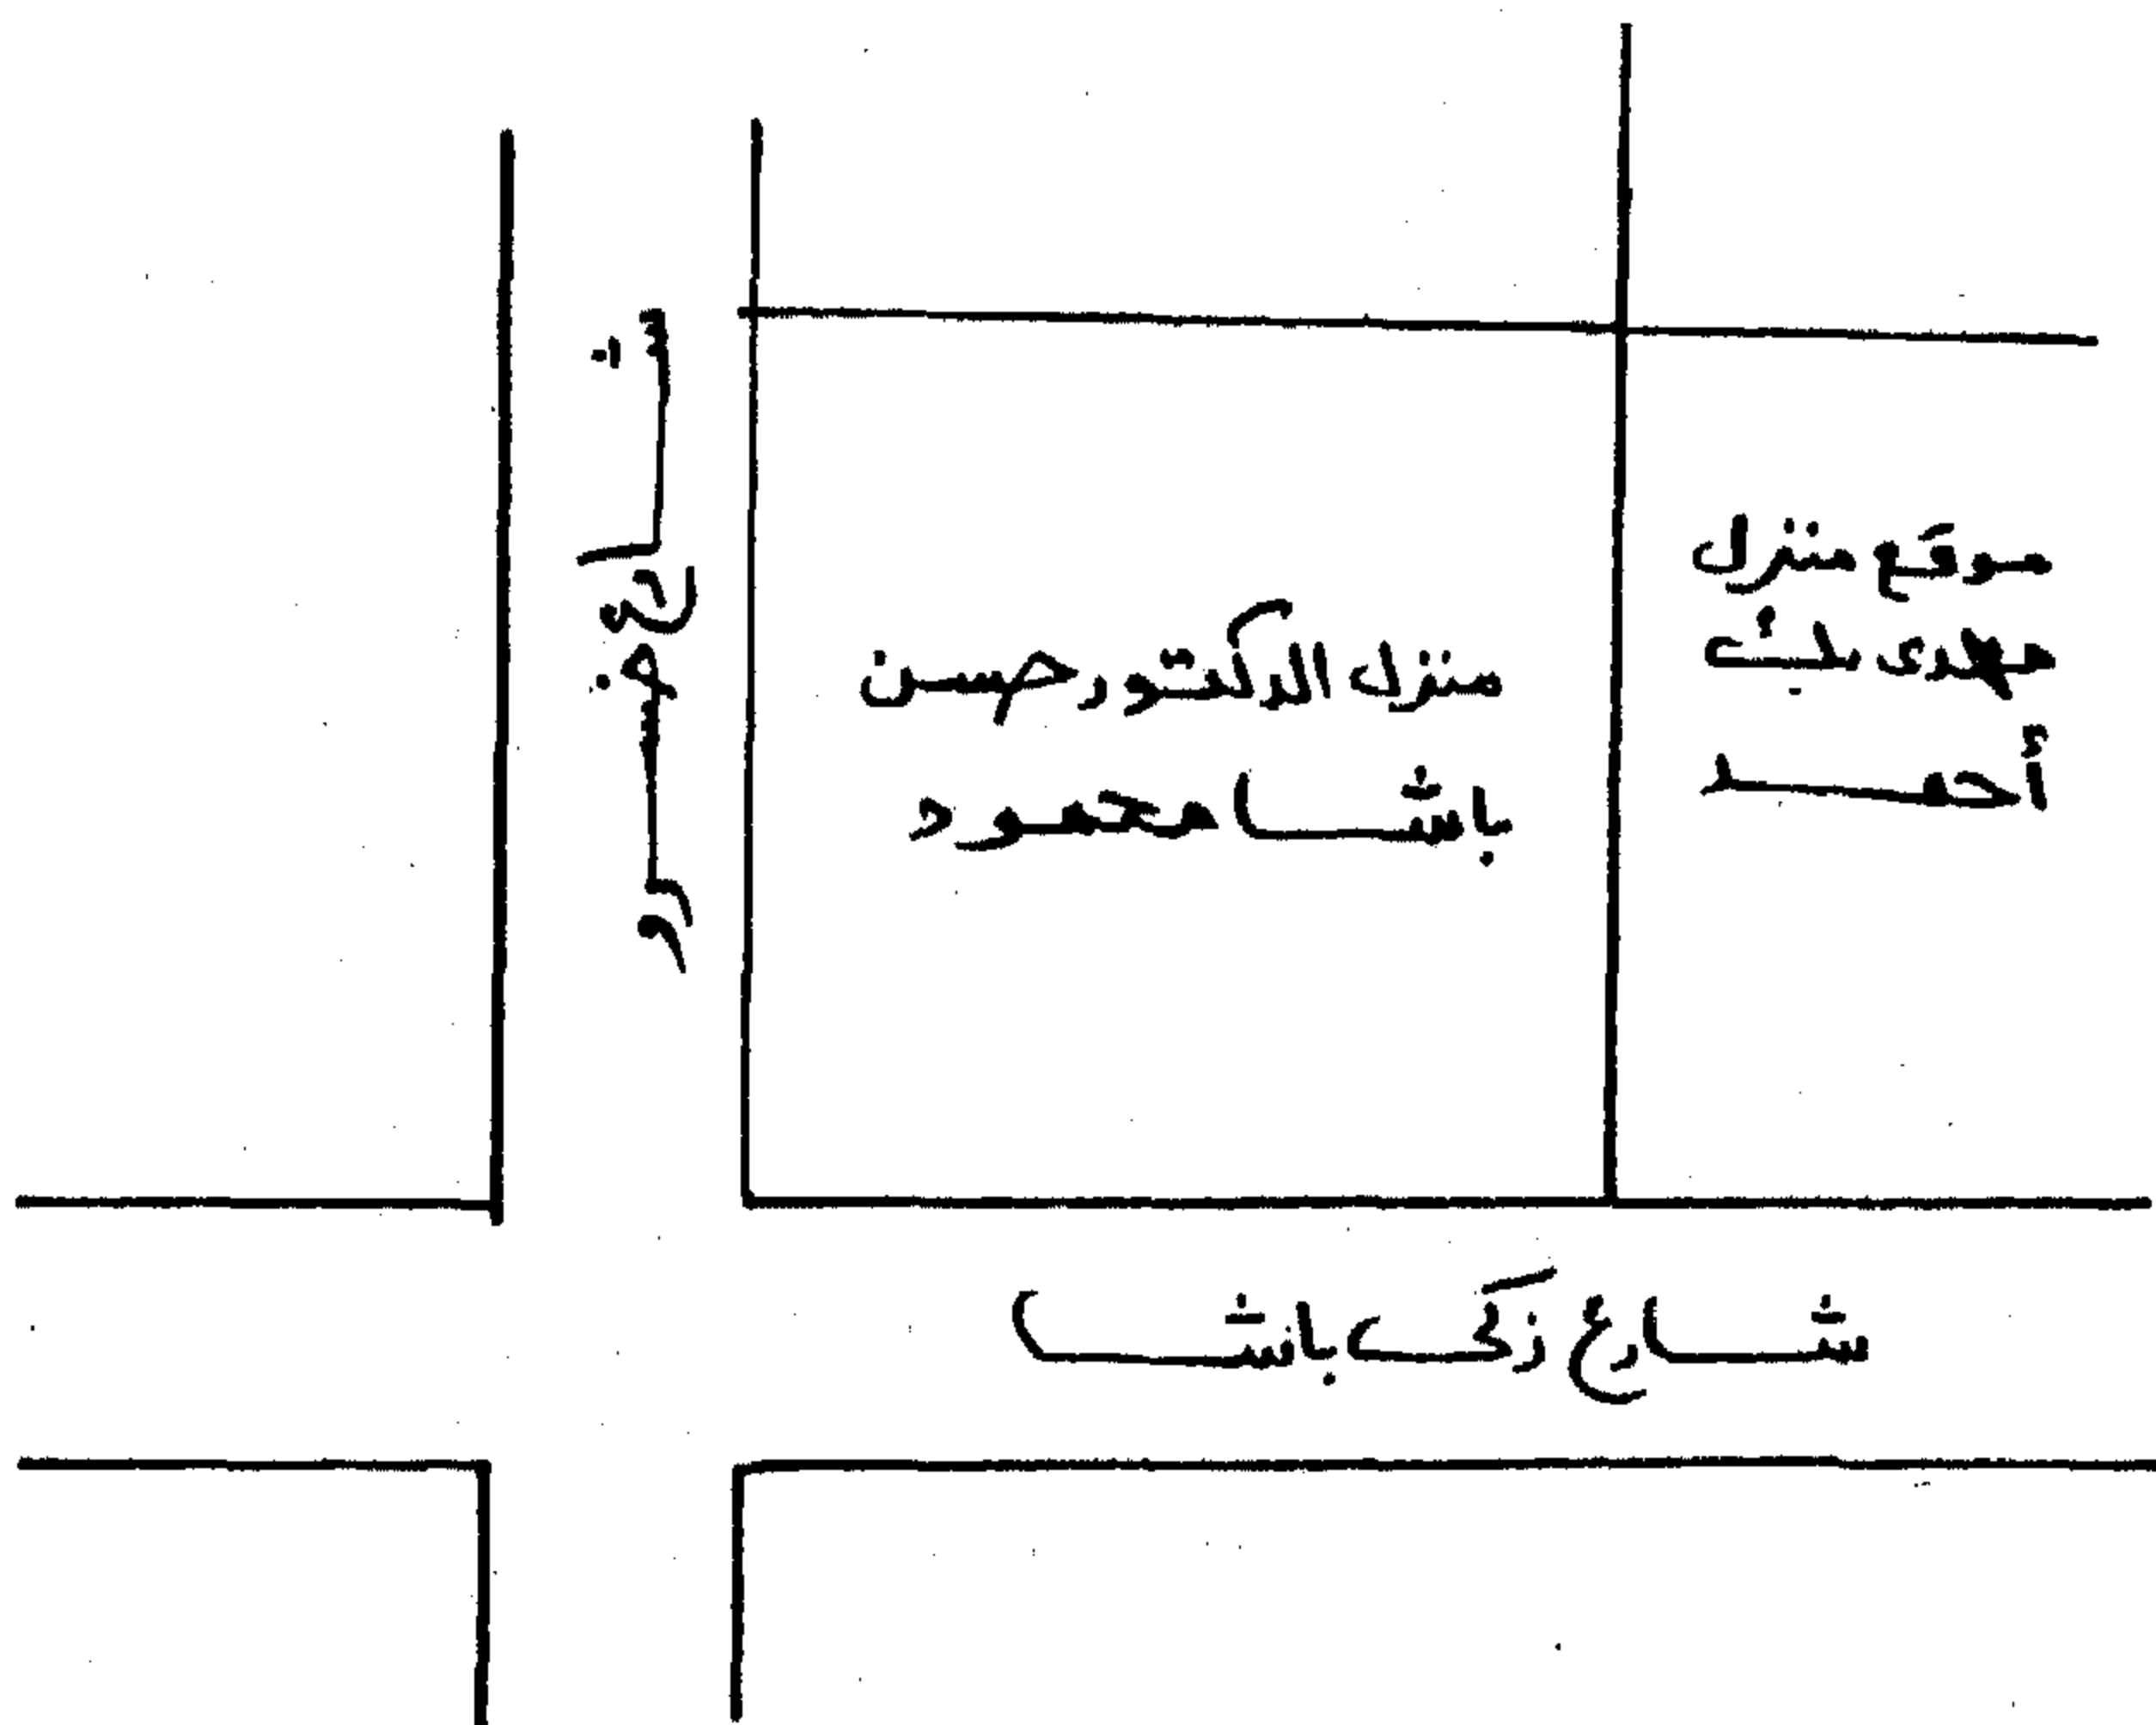 موقع منزل
بك
أحمد
منزل الدكتور حسن
باشا محمود
شارع
شارع زكى باشا